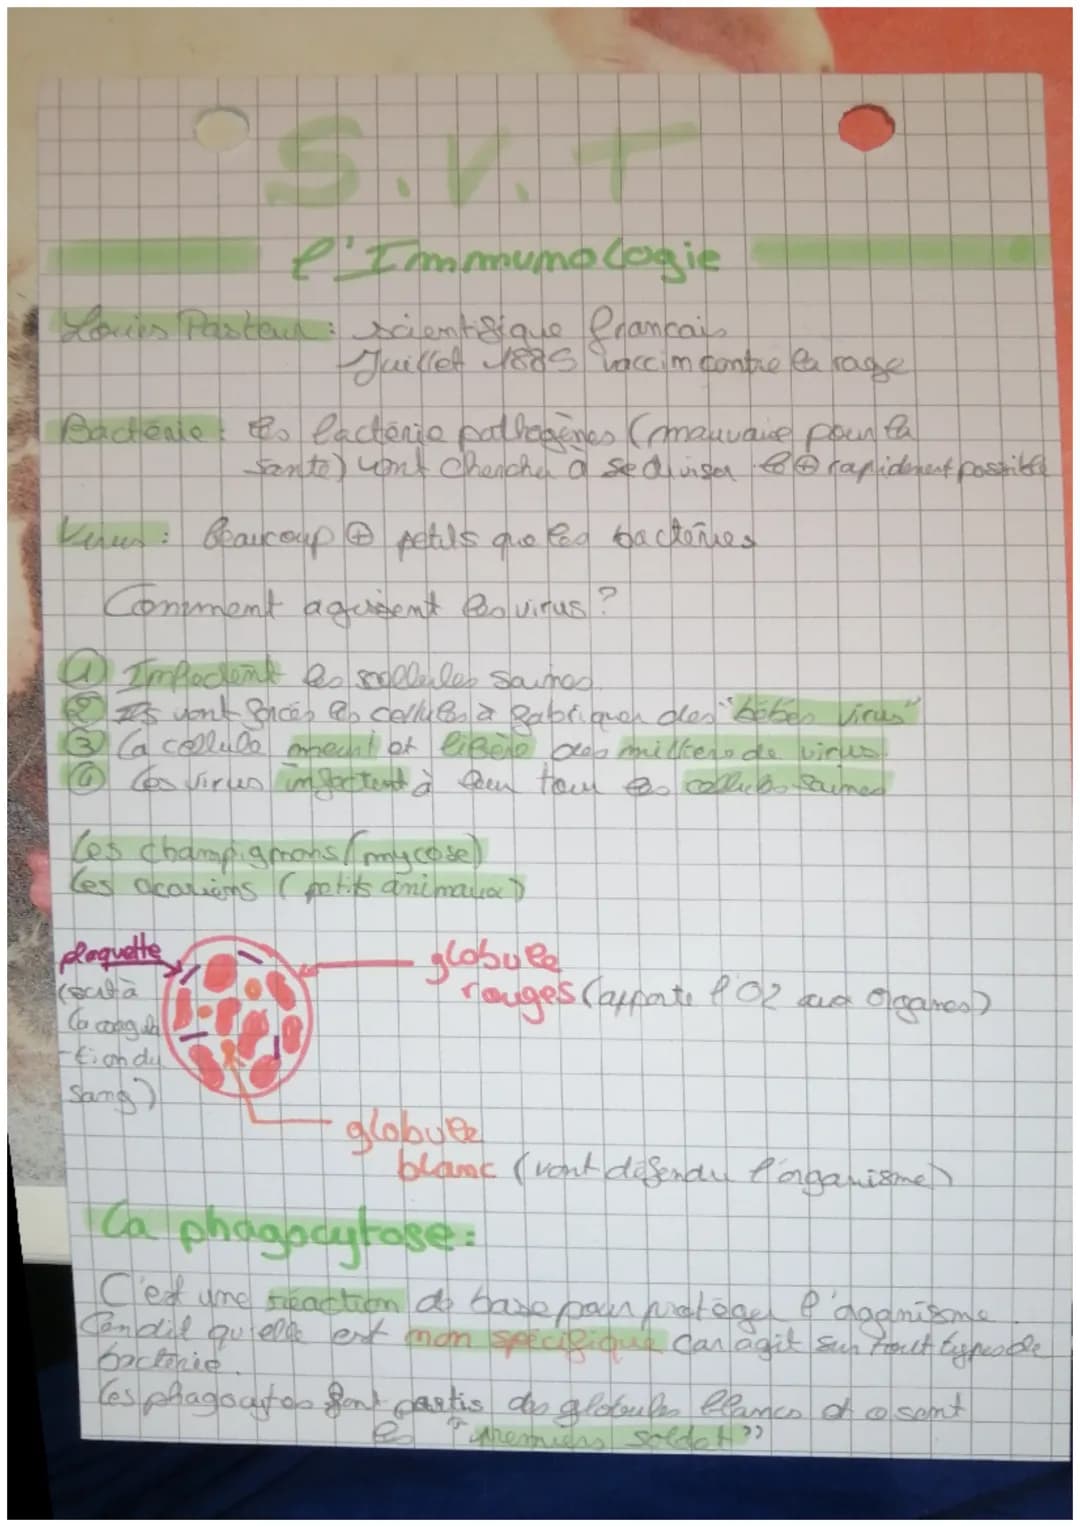 S.V.T
l'Immunologie
Louis Pasteur : scientifique français
Juillet 1885 vaccin contre la rage
Bactérie : les bactérie pathogènes (mauvaise pour la
santé) vont chercher à se diviser le ⊕ rapidement possible
Virus : Beaucoup ⊕ petits que les bactéries
Comment agissent les virus ?
① Infectent les cellules saines
② Ils vont forcés les cellules à fabriquer des "bébés virus"
③ La cellule meurt et libère des milliers de virus.
④ Les virus infectent à leur tour les cellules saines
Les champignons (mycose)
Les acariens (petits animaux)
plaquette
(sert à
la coagula
-tion du
sang)
globule
rouges (apporte l'O2 aux organes)
globule
blanc (vont défendre l'organisme)
La phagocytose :
C'est une réaction de base pour protéger l'organisme.
qu'elle est non spécifique car agit sur tout types de
bactérie.
Les phagocytes font partis des globules blancs et sont
les "premiers soldat"